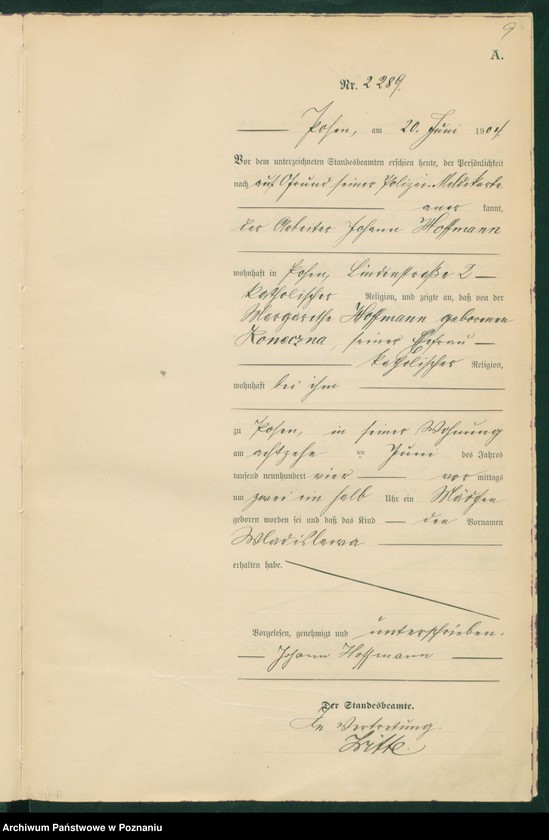 9
A.
Nr. 2289.
Posen, am 20. Juni 1904
Vor dem unterzeichneten Standesbeamten erschien heute, der Persönlichkeit
nach auf Grund seiner Polizei-Meldekarte
aner kannt,
der Arbeiter Johann Hoffmann
wohnhaft in Posen, Lindenstraße 2
katholischer Religion, und zeigte an, daß von der
Margarethe Hoffmann geborenen
Koneczna, seiner Ehefrau
katholischer Religion,
wohnhaft bei ihm
zu Posen, in seiner Wohnung
am achtzehn ten Juni des Jahres
tausend neunhundert vier vor mittags
um zwei ein halb Uhr ein Mädchen
geboren worden sei und daß das Kind den Vornamen
Wladislawa
erhalten habe.
Vorgelesen, genehmigt und unterschrieben.
Johann Hoffmann
Der Standesbeamte.
In Vertretung.
Archiwum Państwowe w Poznaniu